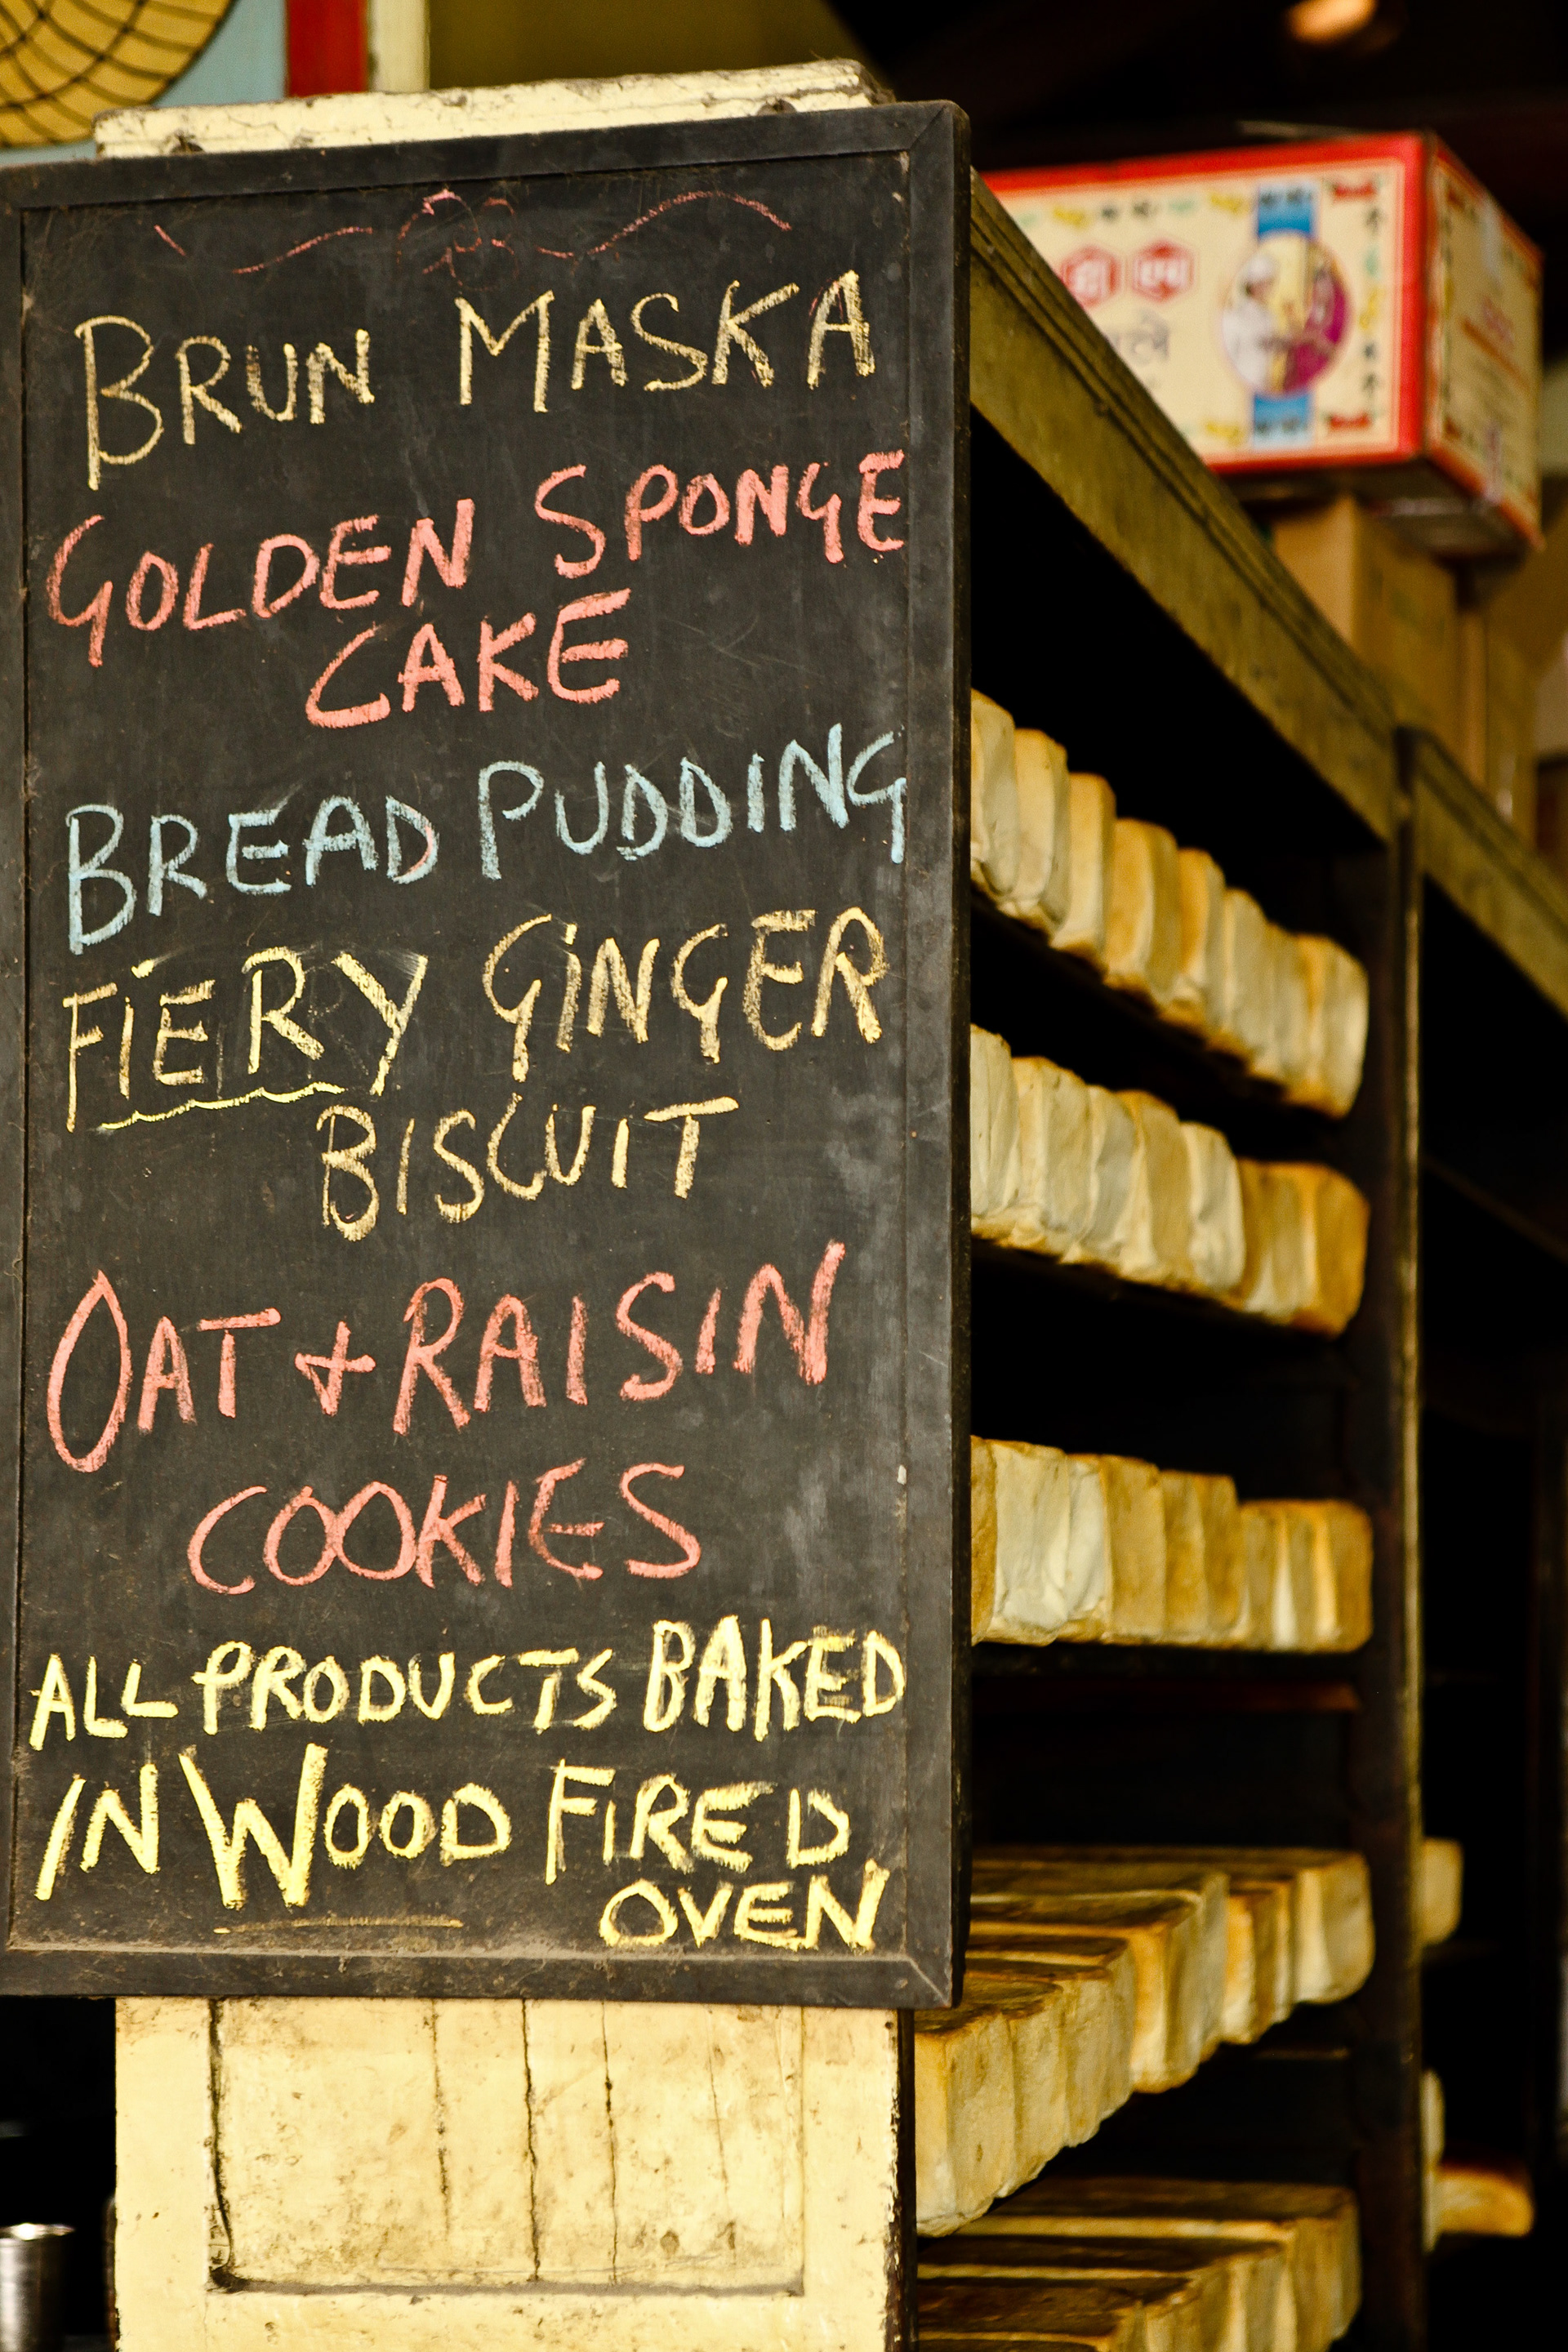 BRUN MASKA
GOLDEN SPONGE
CAKE
BREAD PUDDING
FIERY GINGER
BISCUIT
OAT + RAISIN
COOKIES
ALL PRODUCTS BAKED
IN WOOD FIRED
OVEN